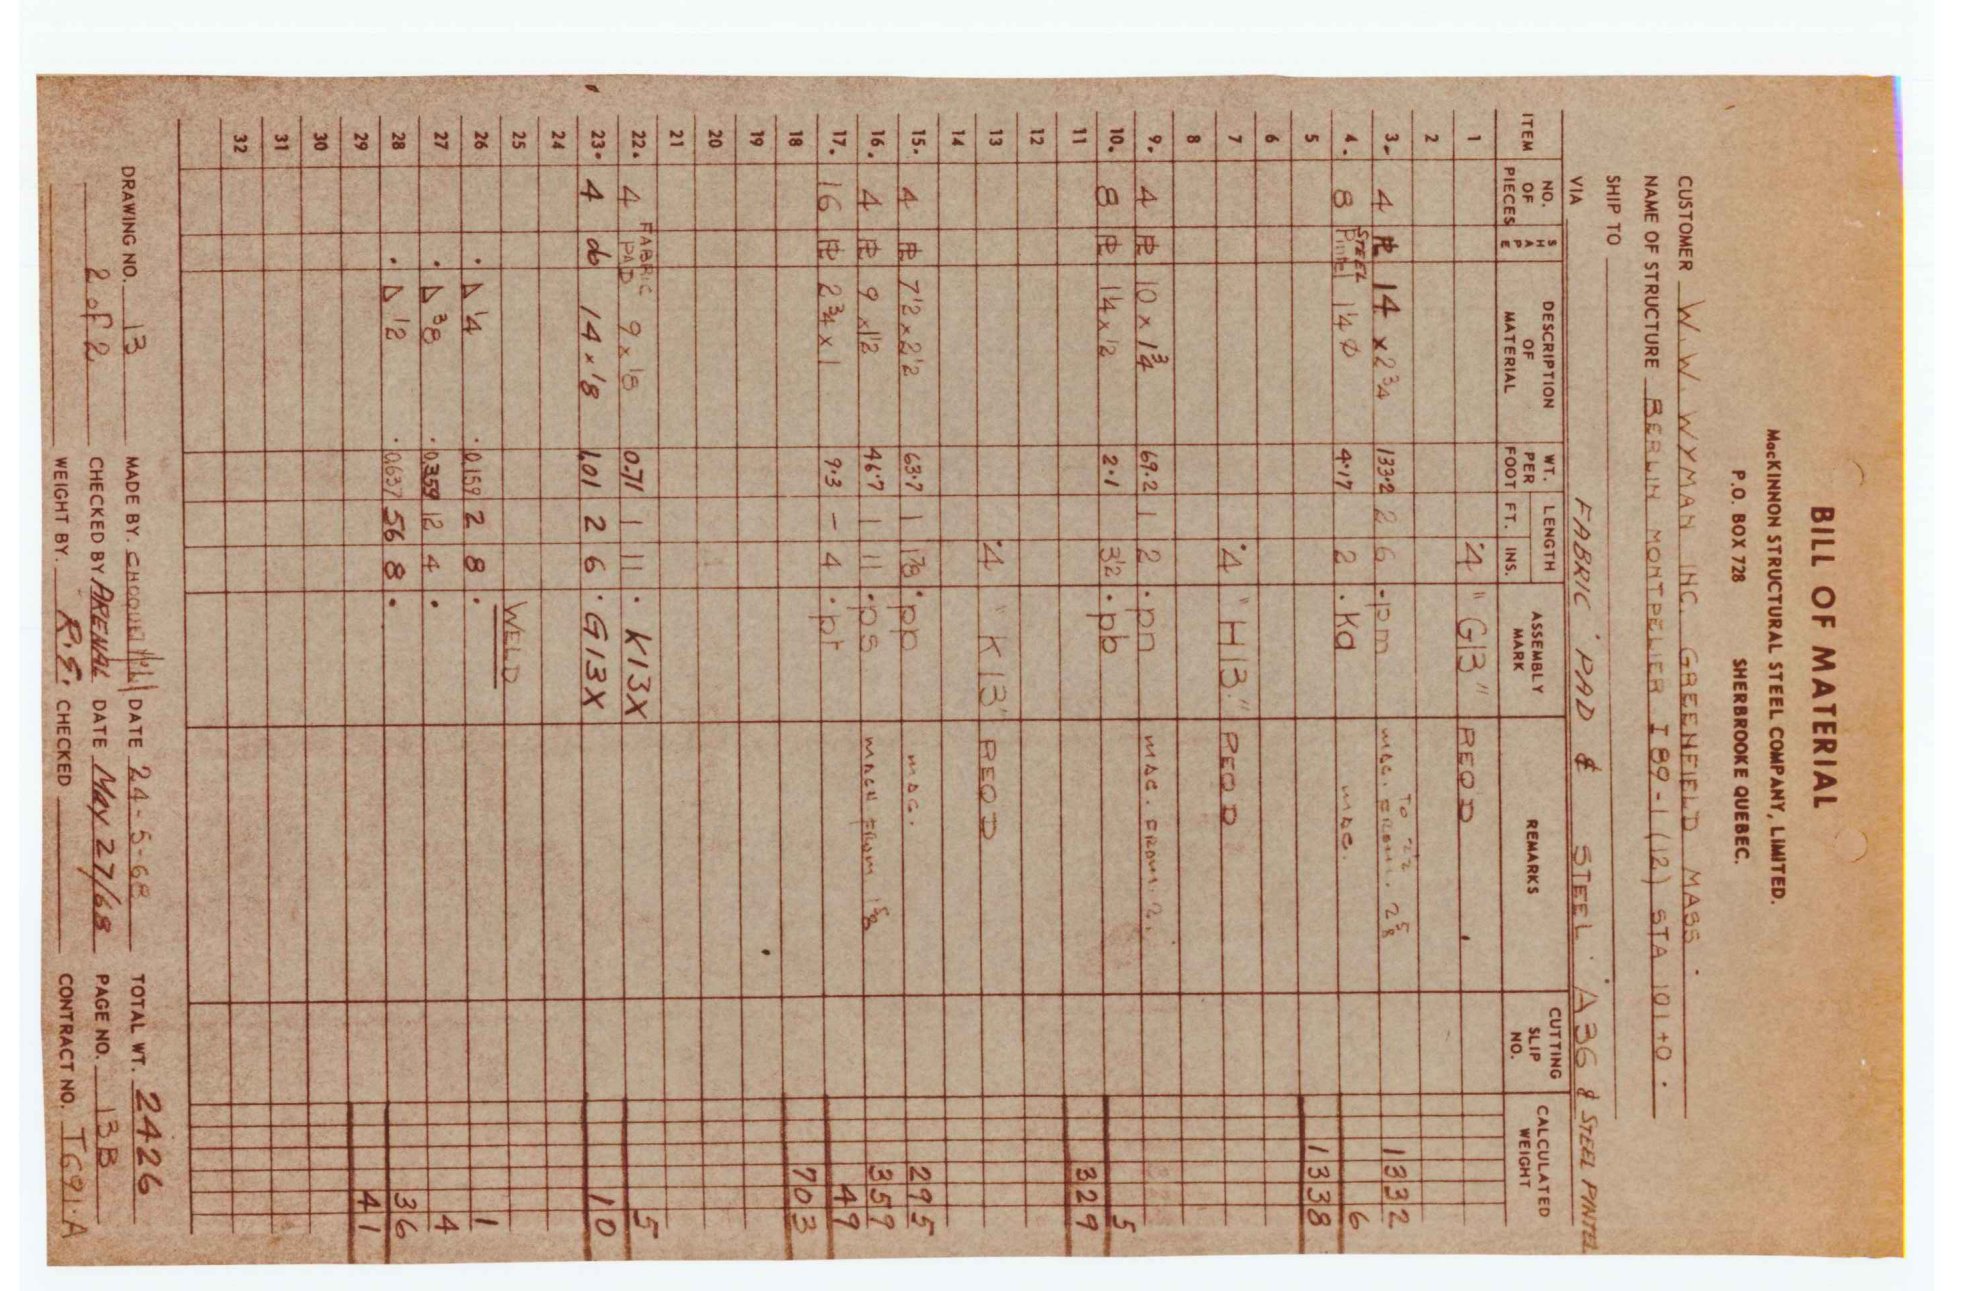 BILL OF MATERIAL
MacKINNON STRUCTURAL STEEL COMPANY, LIMITED.
P.O. BOX 728 SHERBROOKE QUEBEC.
CUSTOMER W. W. WYMAN INC. GREENFIELD MASS.
NAME OF STRUCTURE BERLIN MONTPELIER I 89-1 (12) STA 101+0.
SHIP TO
VIA FABRIC PAD & STEEL A36 & STEEL PINTEL
ITEM NO. OF PIECES SHAPE DESCRIPTION OF MATERIAL WT. PER FOOT LENGTH FT. INS. ASSEMBLY MARK REMARKS CUTTING SLIP NO. CALCULATED WEIGHT
1 4 "G13" REQD
2
3. 4 PL 14 x 2 3/4 133.2 2 6 pm mac. FROM. 2 5/8 TO 2 1/2 1332
4. 8 STEEL Pintel 1 1/4 Ø 4.17 2 Ka mac. 6
5 1338
6
7 4 "H13" REQD
8
9. 4 PL 10 x 1 3/4 69.2 1 2 pn mac. FROM. 2.
10. 8 PL 1 1/4 x 1/2 2.1 3 1/2 pb 5
11 329
12
13 4 "K13" REQD
14
15. 4 PL 7 1/2 x 2 1/2 63.7 1 1 7/8 pp mac. 295
16. 4 PL 9 x 1 1/2 46.7 1 11 ps mach FROM 1 5/8 359
17. 16 PL 2 3/4 x 1 9.3 - 4 pt 49
18 703
19
20
21
22. 4 FABRIC PAD 9 x 1/8 0.71 1 11 K13X 5
23. 4 do 14 x 1/8 1.01 2 6 G13X 10
24
25 WELD
26 △ 1/4 .0159 2 8 1
27 △ 3/8 .0359 12 4 4
28 △ 1/2 .0637 56 8 36
29 41
30
31
32
DRAWING NO. 13 MADE BY. DATE 24-5-68 TOTAL WT. 2426
2 of 2 CHECKED BY ARENAL DATE May 27/68 PAGE NO. 13B
WEIGHT BY. R.E. CHECKED CONTRACT NO. T691-A